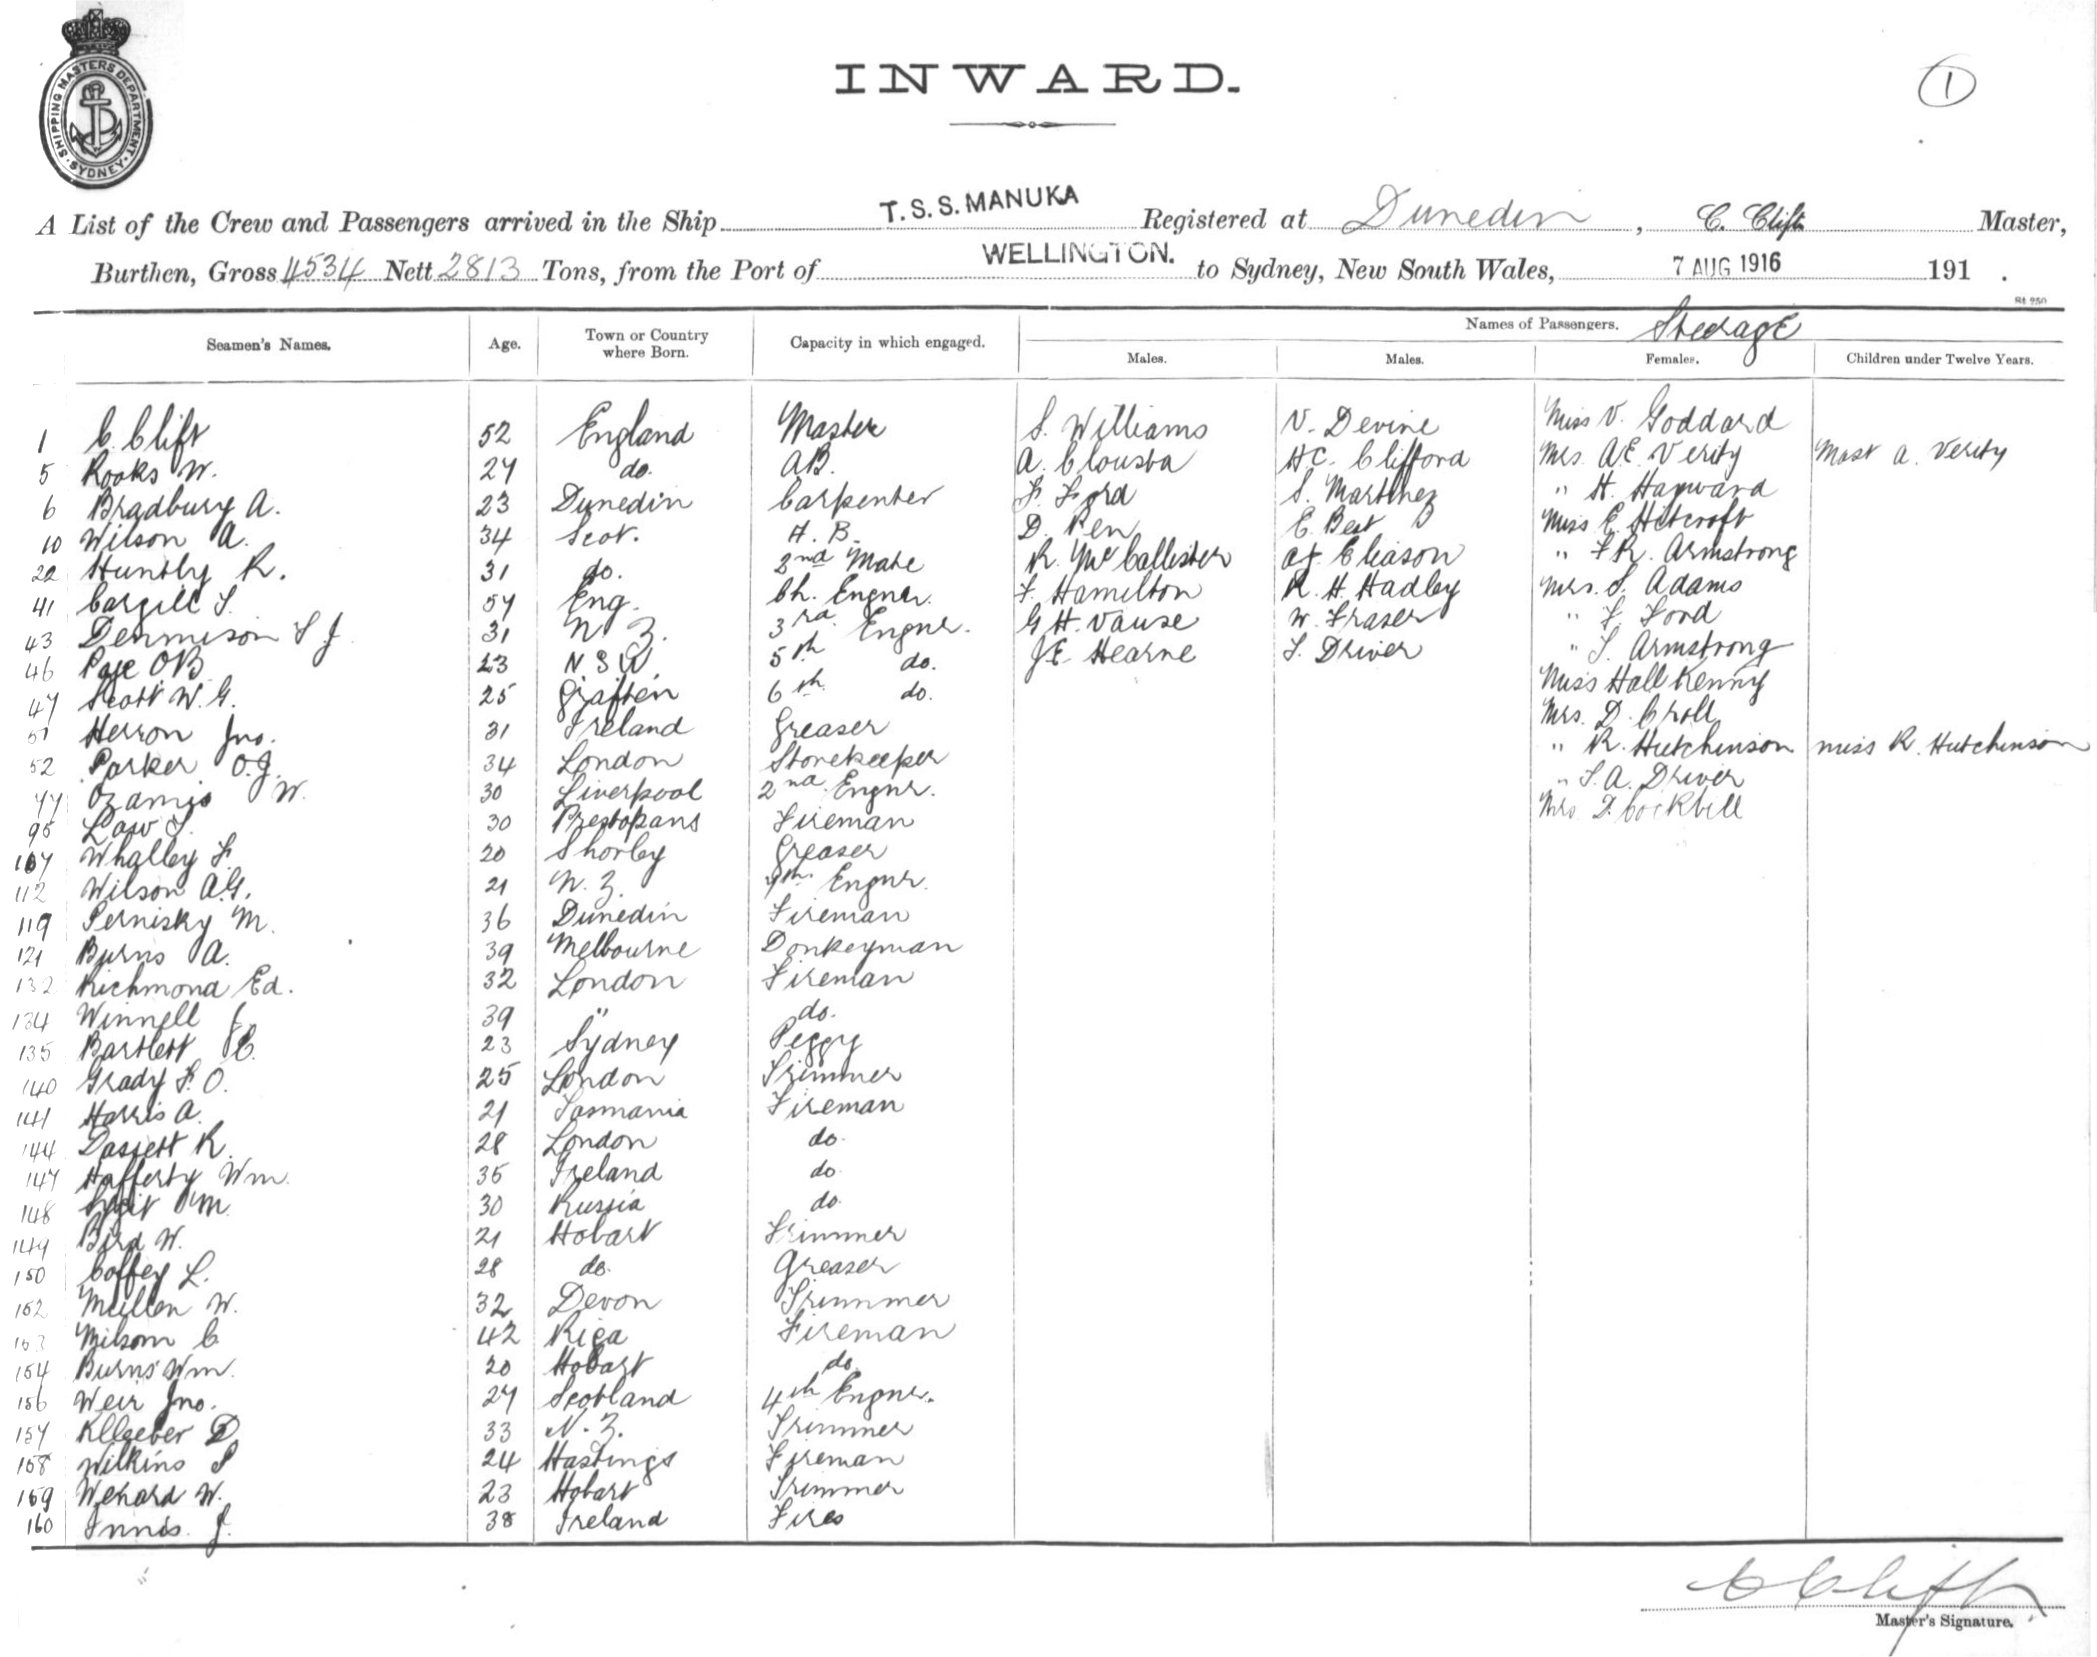 SHIPPING MASTERS DEPARTMENT. SYDNEY.
INWARD.
1
A List of the Crew and Passengers arrived in the Ship T.S.S. MANUKA Registered at Dunedin, C. Clift Master,
Burthen, Gross 4534 Nett 2813 Tons, from the Port of WELLINGTON. to Sydney, New South Wales, 7 AUG 1916 191 .
St 250
Seamen's Names. Age. Town or Country where Born. Capacity in which engaged. Names of Passengers. Steerage
Males. Males. Females. Children under Twelve Years.
1 C. Clift 52 England Master S. Williams V. Devine Miss V. Goddard
5 Rooks W. 27 do. AB. A. Clousta HC. Clifford Mrs. A.E. Verity Mast A. Verity
6 Bradbury A. 23 Dunedin Carpenter F. Ford S. Martinez " H. Hayward
10 Wilson A. 34 Scot. A.B. D. Pen E Best Miss E. Hitcroft
22 Huntly R. 31 do. 2nd Mate R. McCallister Eliason " F R. Armstrong
41 Cargill S. 57 Eng. Ch. Engner. F. Hamilton R. H. Hadley Mrs. S. Adams
43 Dennison S J 31 N Z. 3rd Engnr. G H. Vause W. Fraser " F. Ford
46 OB 23 N S W. 5th do. J E Hearne S. Driver " S. Armstrong
47 Scott W. G. 25 Grafton 6th do. Miss Hall Kenny
51 Herron Jno. 31 Ireland Greaser Mrs. D. Croll
52 Parker O.J. 34 London Storekeeper " R. Hutchinson Miss R. Hutchinson
77 Ozamis W. 30 Liverpool 2nd Engnr. " S. A. Driver
95 Law S. 30 Prestopans Fireman Mrs. F. Cockbill
107 Whalley F. 20 Shorley Greaser
112 Wilson A.G. 21 N. Z. 7th Engnr.
119 Pernisky M. 36 Dunedin Fireman
121 Burns A. 39 Melbourne Donkeyman
132 Richmond Ed. 32 London Fireman
134 Winnell J. 39 " do.
135 Bartlett C. 23 Sydney Peggy
140 Grady F. O. 25 London Trimmer
141 Harris A. 21 Tasmania Fireman
144 Dassett R. 28 London do.
147 Hafferty Wm. 35 Ireland do.
148 M. 30 Russia do.
149 Bird W. 21 Hobart Trimmer
150 Coffey L. 28 do. Greaser
152 Mullen W. 32 Devon Trimmer
153 Milsom C 42 Riga Fireman
154 Burns Wm. 20 Hobart do.
156 Weir Jno. 27 Scotland 4th Engnr.
157 Klleeber D 33 N. Z. Trimmer
158 Wilkins S 24 Hastings Fireman
159 Wehard W. 23 Hobart Trimmer
160 Innis. J. 38 Ireland Fires
C Clift
Master's Signature.